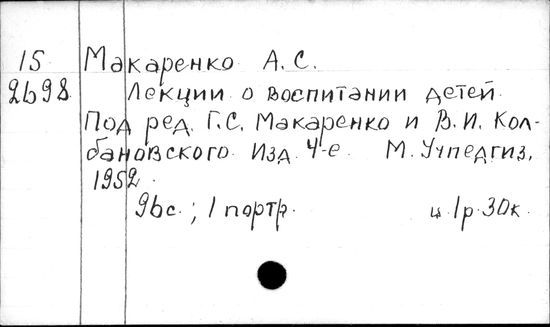 15 Макаренко А.С.
2698 Лекции о воспитании детей
Под ред. Г.С. Макаренко и В.И. Кол-
бановского Изд 4-е М. Учпедгиз,
1952.
96с.; 1 портр. ц 1р 30к